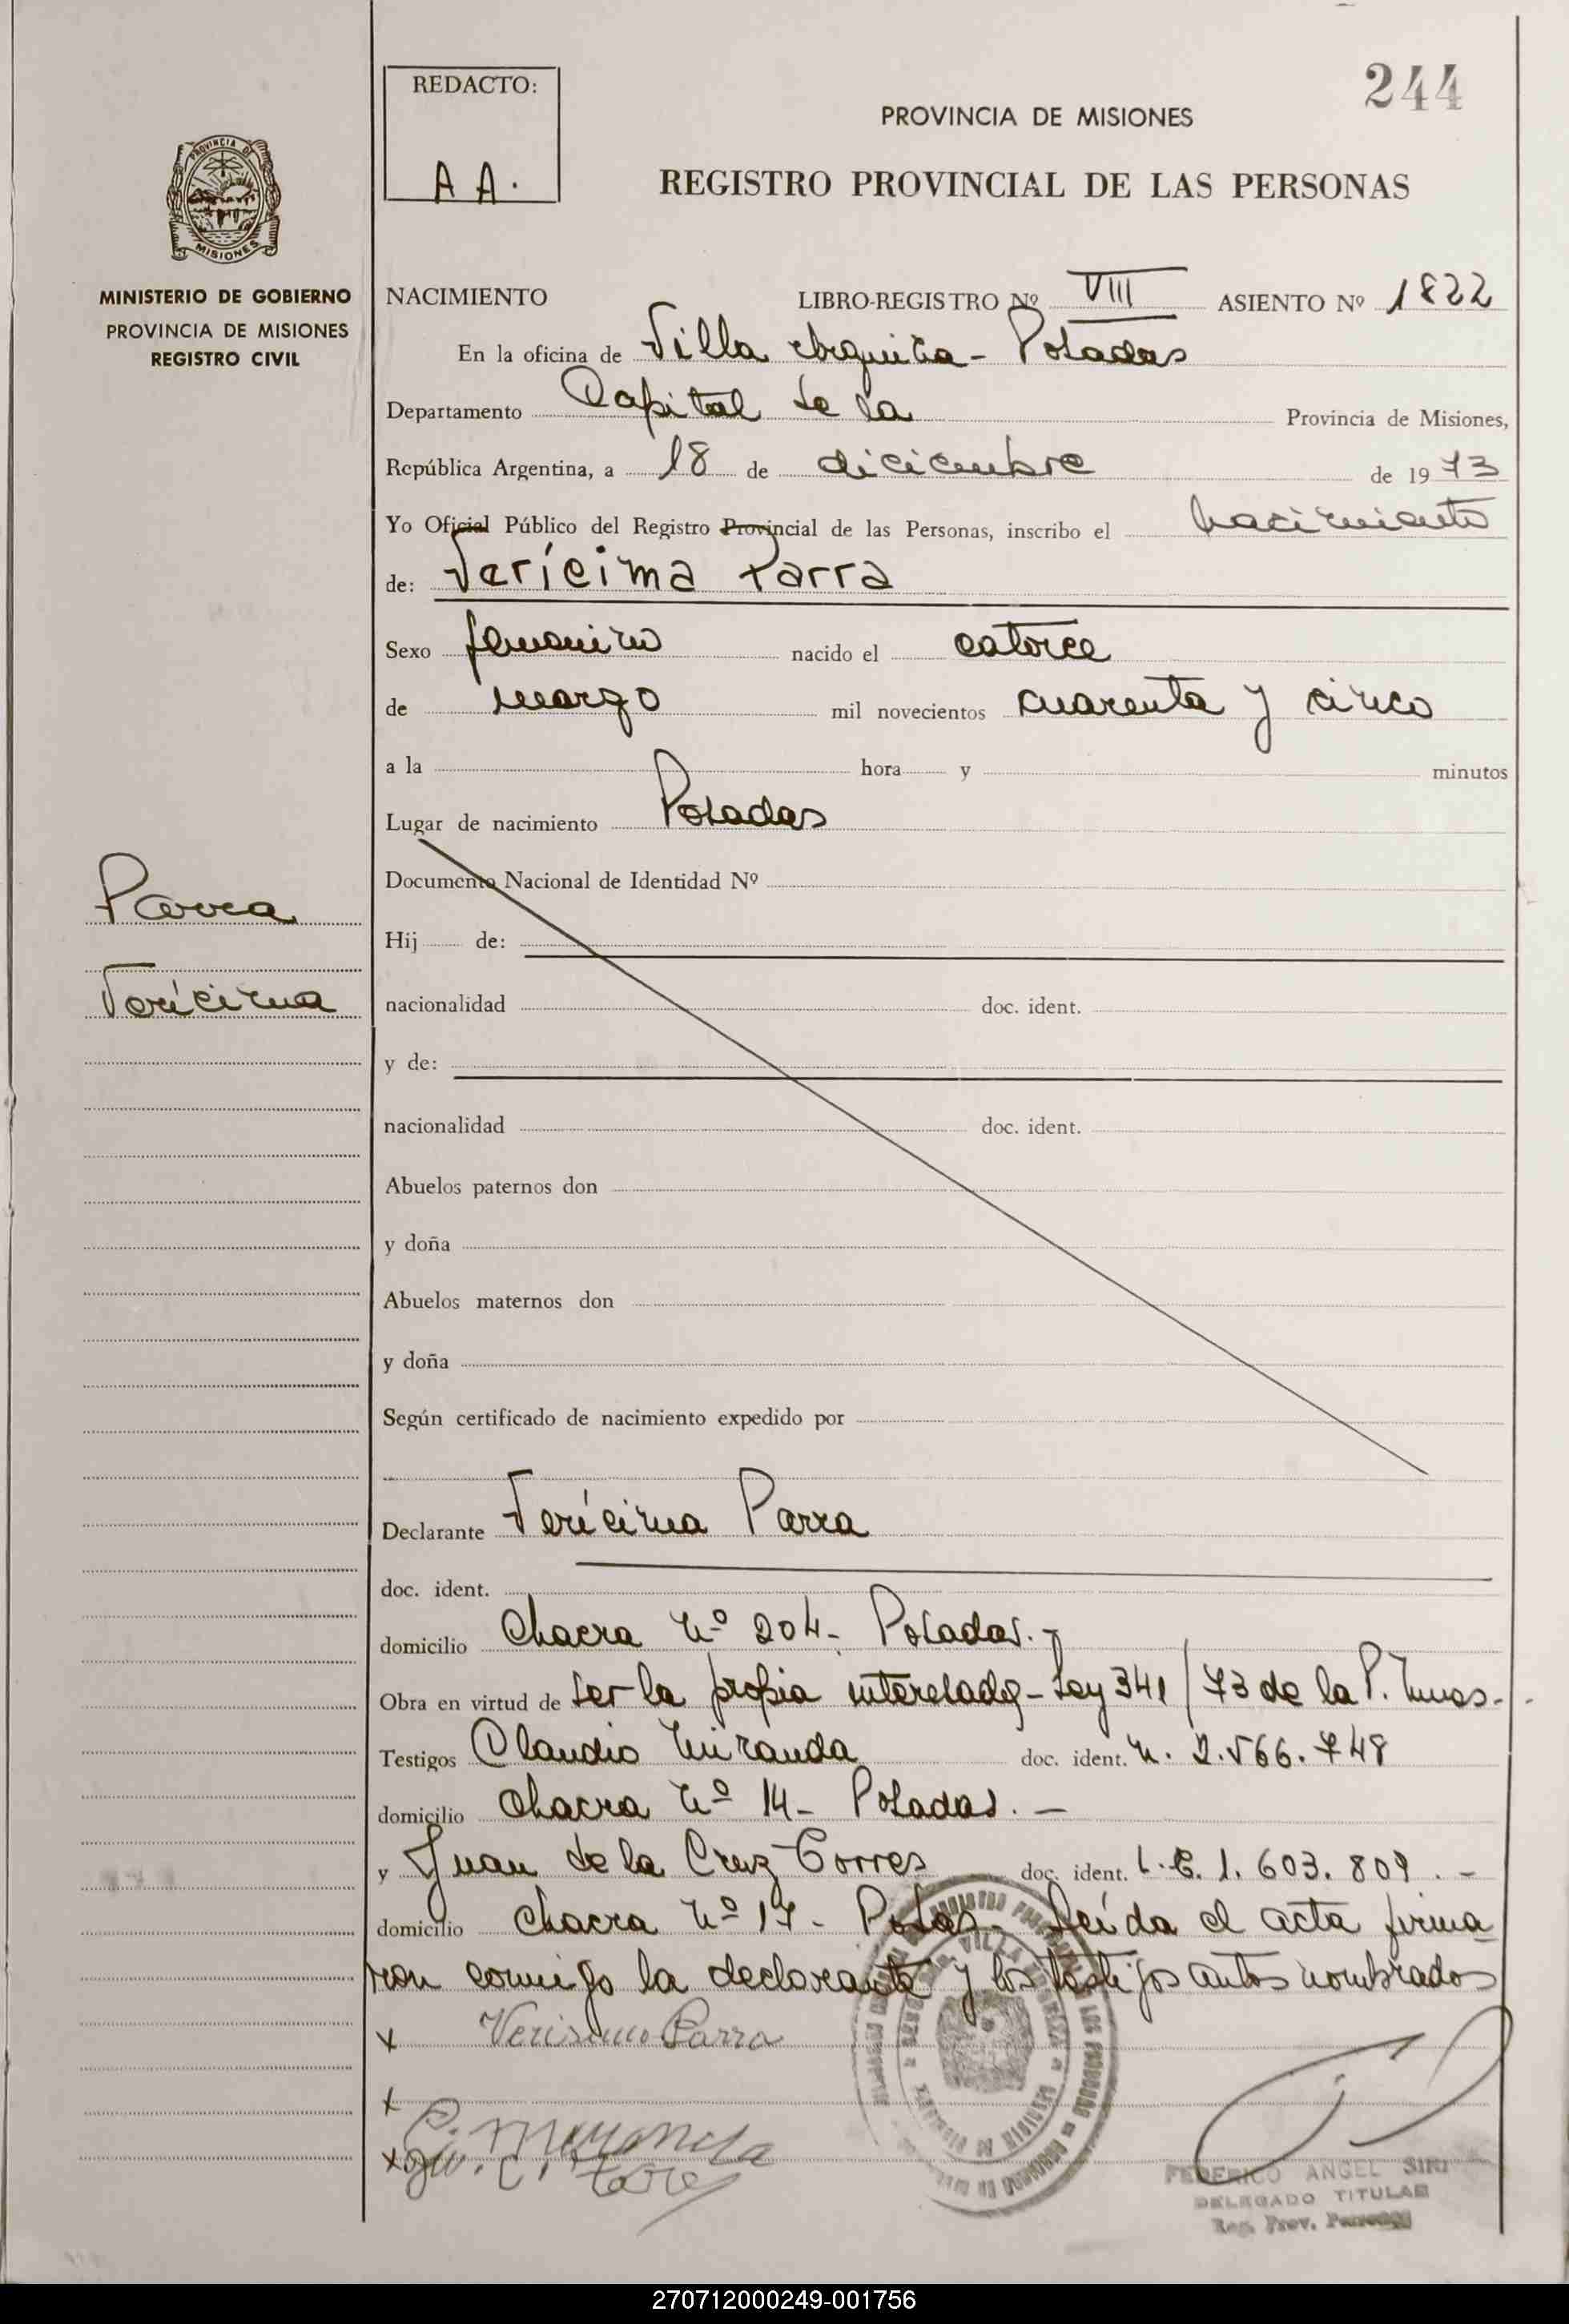 244
REDACTO:
A A.
PROVINCIA DE MISIONES
REGISTRO PROVINCIAL DE LAS PERSONAS
PROVINCIA DE
MISIONES
MINISTERIO DE GOBIERNO
PROVINCIA DE MISIONES
REGISTRO CIVIL
NACIMIENTO LIBRO-REGISTRO Nº VIII ASIENTO Nº 1822
En la oficina de Villa Urquiza - Posadas
Departamento Capital de la Provincia de Misiones,
República Argentina, a 18 de diciembre de 1973
Yo Oficial Público del Registro Provincial de las Personas, inscribo el nacimiento
de: Verícima Parra
Sexo femenino nacido el catorce
de marzo mil novecientos cuarenta y cinco
a la hora y minutos
Lugar de nacimiento Posadas
Documento Nacional de Identidad Nº
Parra
Hij de:
Verícima
nacionalidad doc. ident.
y de:
nacionalidad doc. ident.
Abuelos paternos don
y doña
Abuelos maternos don
y doña
Según certificado de nacimiento expedido por
Declarante Verícima Parra
doc. ident.
domicilio Chacra Nº 204- Posadas.-
Obra en virtud de ser la propia interesada - Ley 341/73 de la P. Mnes.-
Testigos Claudio Miranda doc. ident. M. 2.566.748
domicilio Chacra Nº 14- Posadas.-
y Juan de la Cruz Torres doc. ident. L.E. 1.603.809.-
domicilio Chacra Nº 17- Posas- Leída el acta firma
ron conmigo la declarante y los testigos antes nombrados
x Verisimo Parra
x
C. Miranda
x Ju. C. Torres
FEDERICO ANGEL SIRI
DELEGADO TITULAR
Reg. Prov. Personas
270712000249-001756